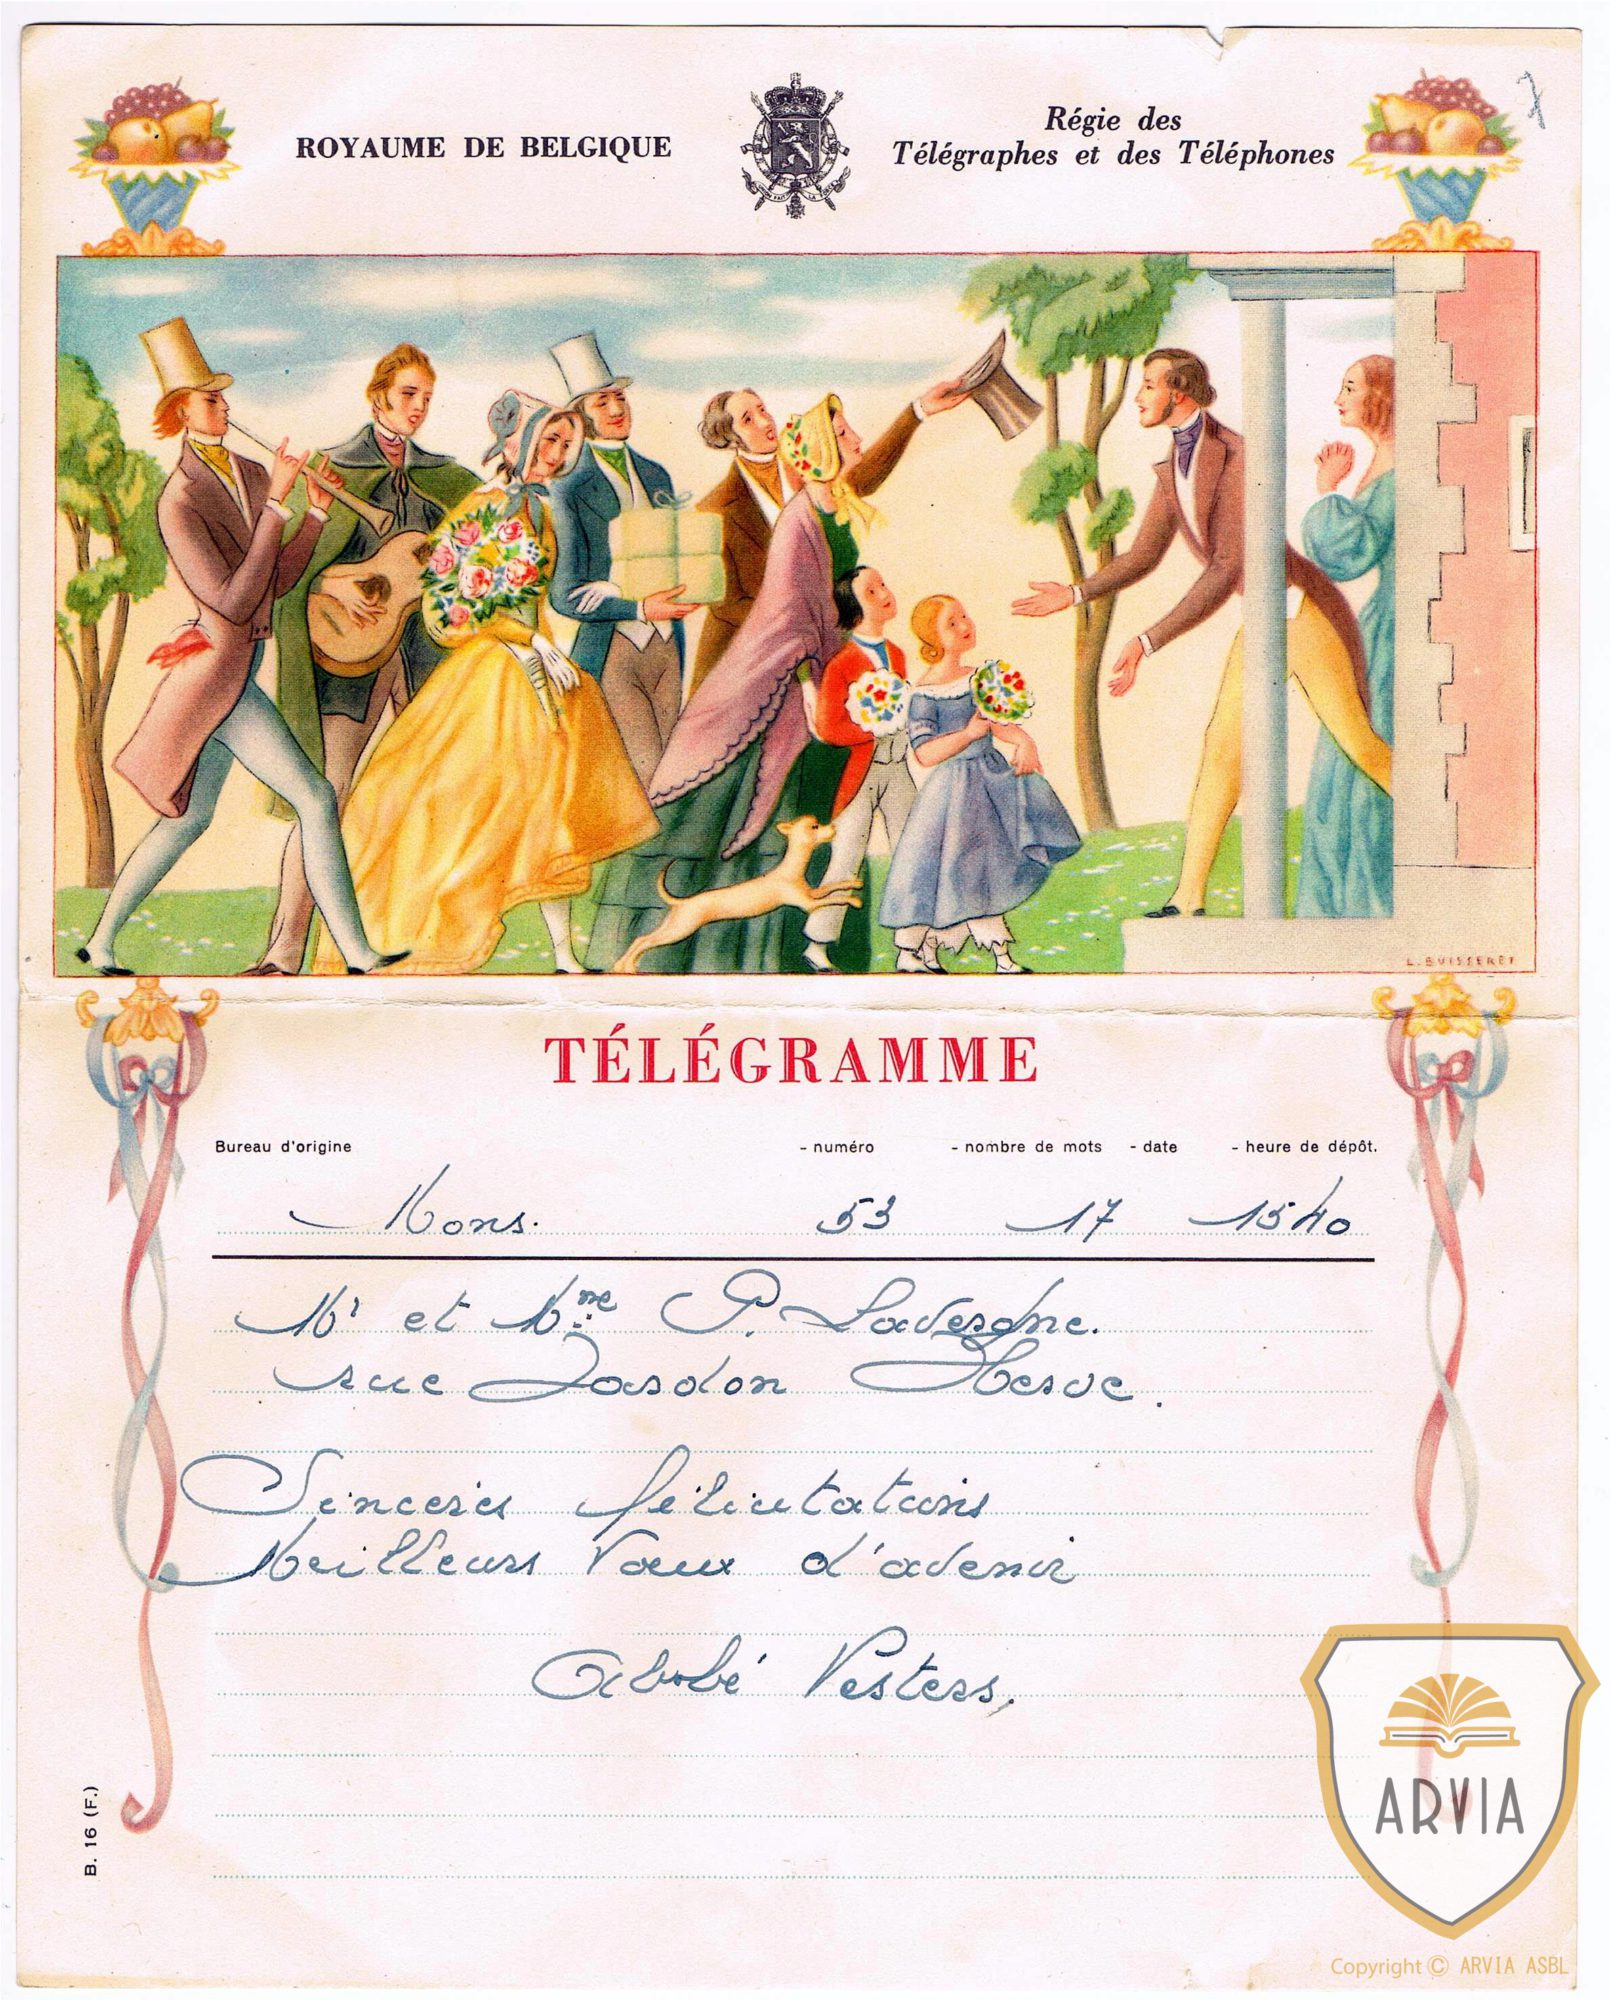 ROYAUME DE BELGIQUE
Régie des
Télégraphes et des Téléphones
L. BUISSERET
TÉLÉGRAMME
Bureau d'origine - numéro - nombre de mots - date - heure de dépôt.
Mons. 53 17 15h40
Mr et Mme P.
rue Jardon Herve.
Sincères félicitations
Meilleurs Vœux d'avenir
Abbé Vesters.
B. 16 (F.)
ARVIA
Copyright © ARVIA ASBL